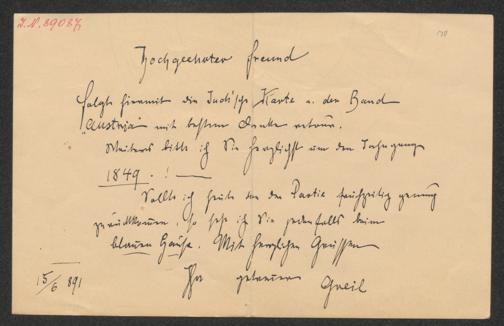 I.N. 89087
Hochgeehrter Freund
folgt hiermit die Karte u. der Band
"Austria" mit bestem Danke retour.
Weiters bitte ich Sie herzlichst um den Jahrgang
1849.!—
Sollte ich heute von der Partie frühzeitig genug
zurückkommen, so sehe ich Sie jedenfalls beim
blauen. Mit herzlichen Grüssen
15/6 891
Ihr getreuer Greil